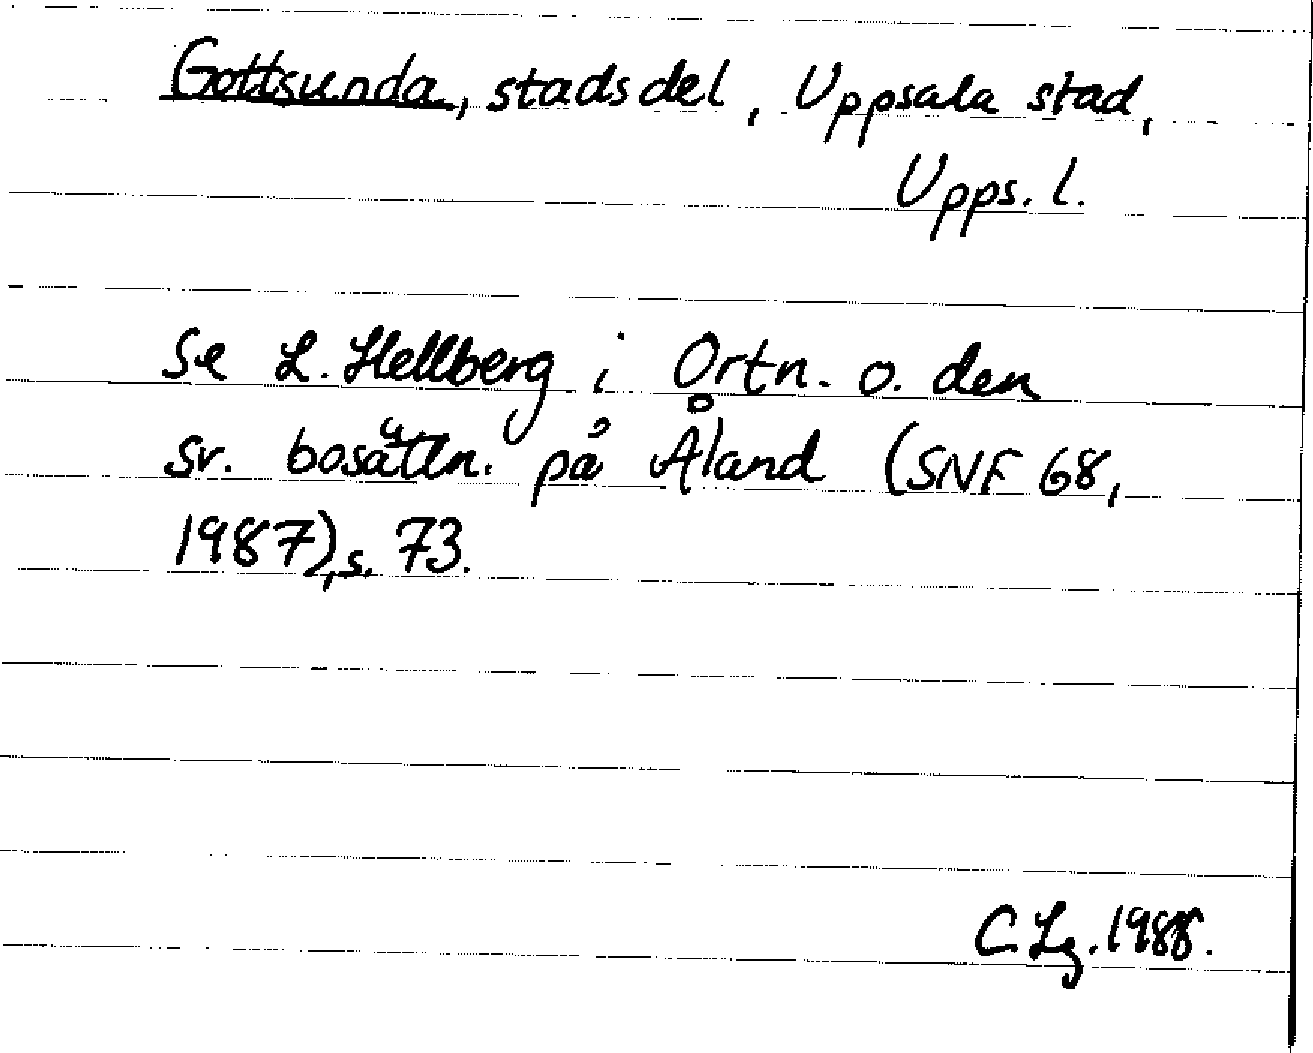 Gottsunda, stadsdel, Uppsala stad,
Upps. l.
Se L. Hellberg i Ortn. o. den
sv. bosättn. på Åland (SNF 68,
1987), s. 73.
C Lg. 1988.